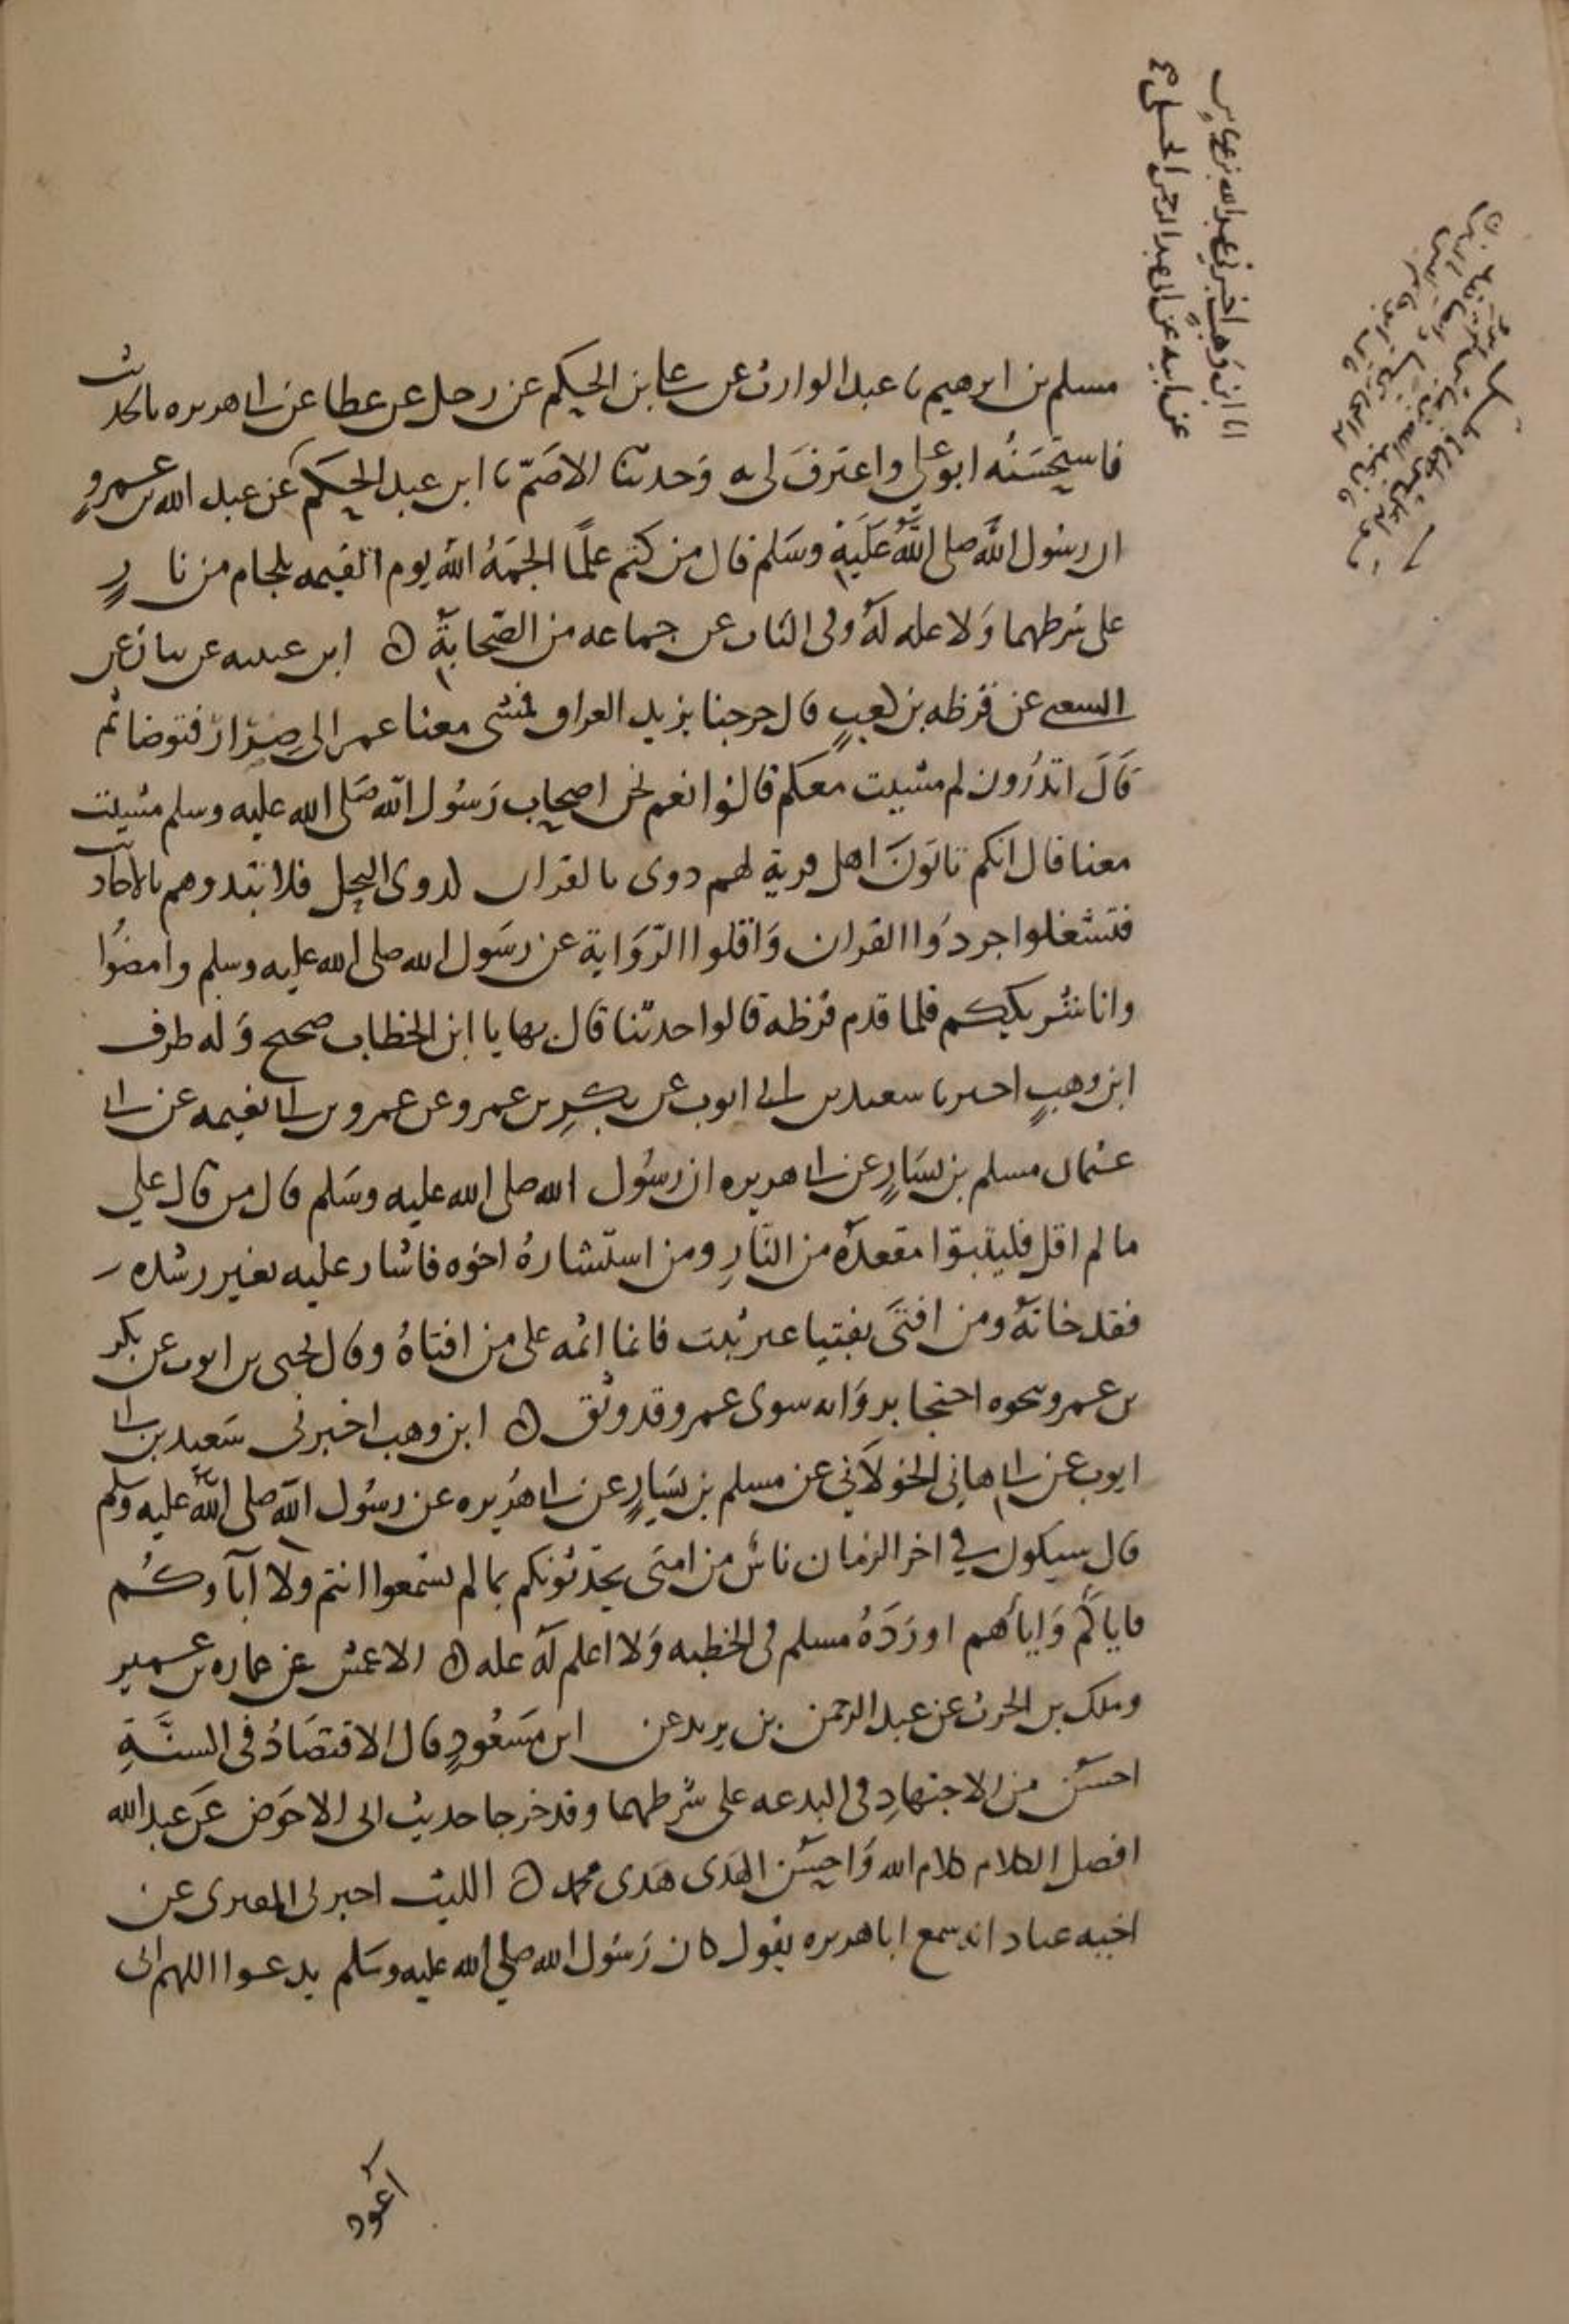 مسلم بن ابرهيم نا عبد الوارث عن علي بن الحكم عن رجل عن عطا عن ابي هريره بالحديث
فاستحسنه ابو علي واعترف لي به وحدثنا الاصم نا ابن عبد الحكم عن عبد الله بن عمرو
ان رسول الله صلى الله عليه وسلم قال من كتم علما الجمه الله يوم القيمه بلجام من نار
على شرطهما ولا عله له وفي الباب عن جماعه من الصحابة ه ابن عيينه عن بيان عن
الشعبي عن قرظه بن كعب قال خرجنا نريد العراق فمشى معنا عمر الى صرار فتوضا ثم
قال اتدرون لم مشيت معكم قالوا نعم نحن اصحاب رسول الله صلى الله عليه وسلم مشيت
معنا قال انكم تاتون اهل قرية لهم دوى بالقران كدوى النحل فلا تبدوهم بالاحاديث
فتشغلوا جردوا القران واقلوا الرواية عن رسول الله صلى الله عليه وسلم وامضوا
وانا شريككم فلما قدم قرظه قالوا حدثنا قال نهايا ابن الخطاب صحيح وله طرق
ابن وهب اخبرنا سعيد بن ابي ايوب عن بكر بن عمرو عن عمرو بن ابي نعيمه عن ابي
عثمان مسلم بن يسار عن ابي هريره ان رسول الله صلى الله عليه وسلم قال من قال علي
ما لم اقل فليتبوا مقعده من النار ومن استشاره اخوه فاشار عليه بغير رشده
فقد خانه ومن افتى بفتيا غير ثبت فانما اثمه على من افتاه وقال يحيى بن ايوب عن بكر
بن عمرو نحوه احتجا برواته سوى عمرو وقد وثق ه ابن وهب اخبرني سعيد بن ابي
ايوب عن ابي هاني الخولاني عن مسلم بن يسار عن ابي هريره عن رسول الله صلى الله عليه وسلم
قال سيكون في اخر الزمان ناس من امتى يحدثونكم بما لم تسمعوا انتم ولا آباوكم
فاياكم واياهم اورده مسلم في الخطبه ولا اعلم له عله ه الاعمش عن عماره بن عمير
وملك بن الحرث عن عبد الرحمن بن يزيد عن ابن مسعود قال الاقتصاد في السنة
احسن من الاجتهاد في البدعه على شرطهما وقد خرجا حديث ابى الاحوص عن عبد الله
افضل الكلام كلام الله واحسن الهدى هدى محمد ه الليث اخبرني المقبرى عن
اخيه عباد انه سمع ابا هريره يقول كان رسول الله صلي الله عليه وسلم يدعوا اللهم انى
اعوذ
انا ابن وهب اخبرني عبد الله بن عياش
عن ابيه عن ابي عبد الرحمن الحبلي